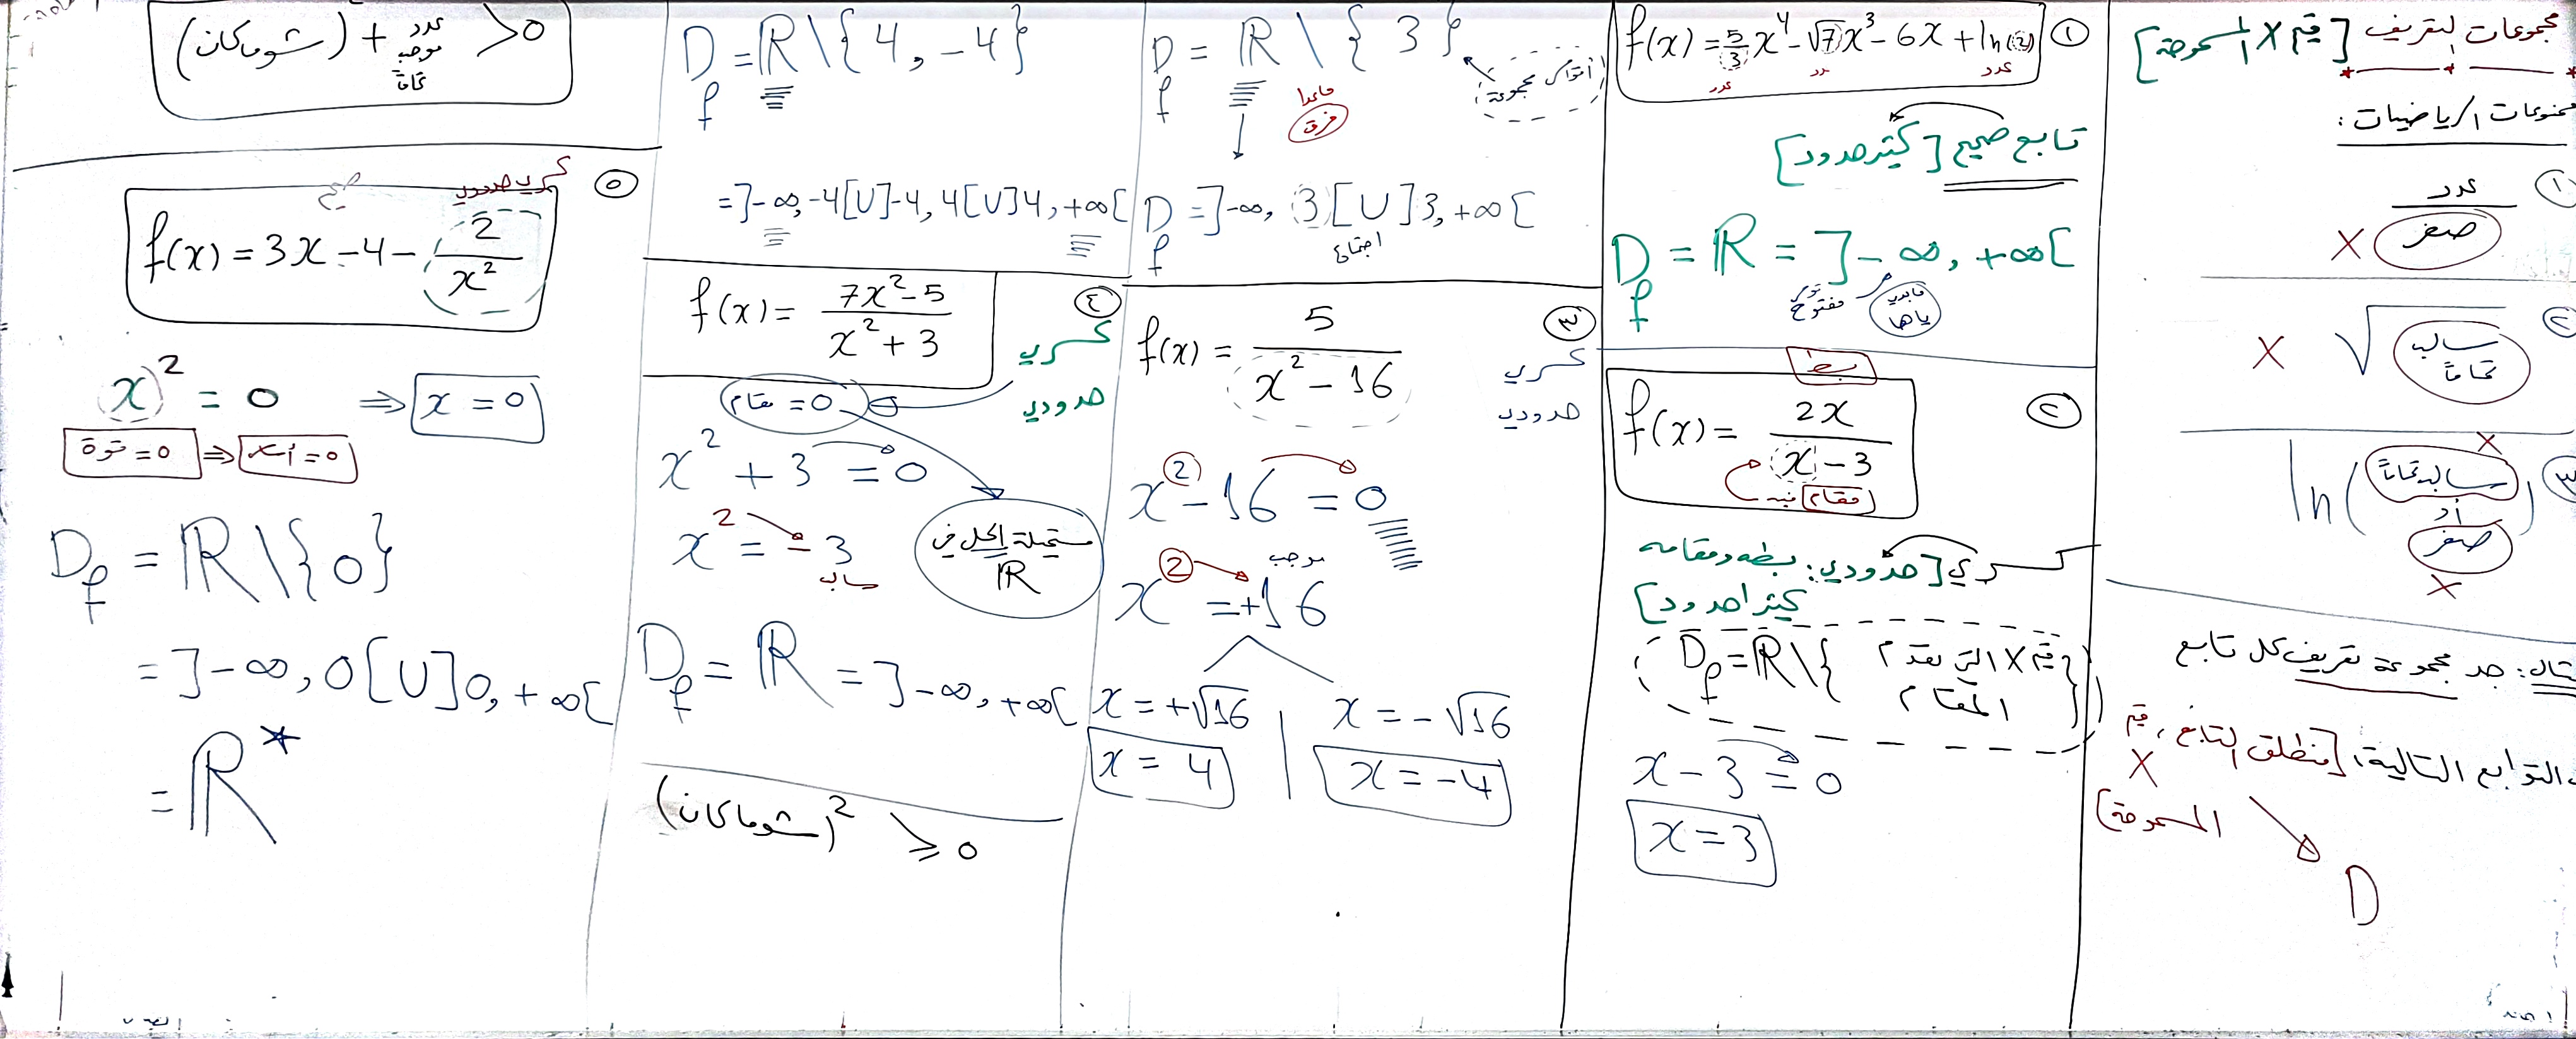 مجموعات التعريف [قيم x المسموحة]
ممنوعات الرياضيات:
① عدد
صفر ×
② √ سالب تماماً ×
③ ln(سالب تماماً أو صفر) ×
مثال: جد مجموعة تعريف كل تابع
التوابع التالية: [منطلق التابع، قيم
x المسموحة]
D
① f(x) = 5/3 x⁴ - √7 x³ - 6x + ln(2)
عدد عدد عدد
تابع صحيح [كثير حدود]
D_f = ℝ = ]-∞, +∞[
مفتوح
② f(x) = 2x / (x - 3)
بسط
مقام فيه x
كسري [حدودي: بسطه ومقامه
كثيرا حدود]
D_f = ℝ\{قيم x التي تعدم
المقام}
x - 3 = 0
x = 3
D_f = ℝ \ { 3 }
أقواس مجموعة
ماعدا
فرق
D_f = ]-∞, 3[ U ]3, +∞[
اجتماع
③ f(x) = 5 / (x² - 16)
كسري
حدودي
x² - 16 = 0
موجب
x² = +16
x = +√16 | x = -√16
x = 4 | x = -4
D_f = ℝ\{4, -4}
= ]-∞, -4[ U ]-4, 4[ U ]4, +∞[
④ f(x) = (7x² - 5) / (x² + 3)
كسري
حدودي
مقام = 0
x² + 3 = 0
x² = -3
سالب
مستحيلة الحل في
ℝ
D_f = ℝ = ]-∞, +∞[
(شو ما كان)² ≥ 0
(شو ما كان) + عدد موجب تماماً > 0
⑤ كسري حدودي
f(x) = 3x - 4 - 2/x²
(x)² = 0 ⇒ x = 0
قوة = 0 ⇒ أساس = 0
D_f = ℝ\{0}
= ]-∞, 0[ U ]0, +∞[
= ℝ*